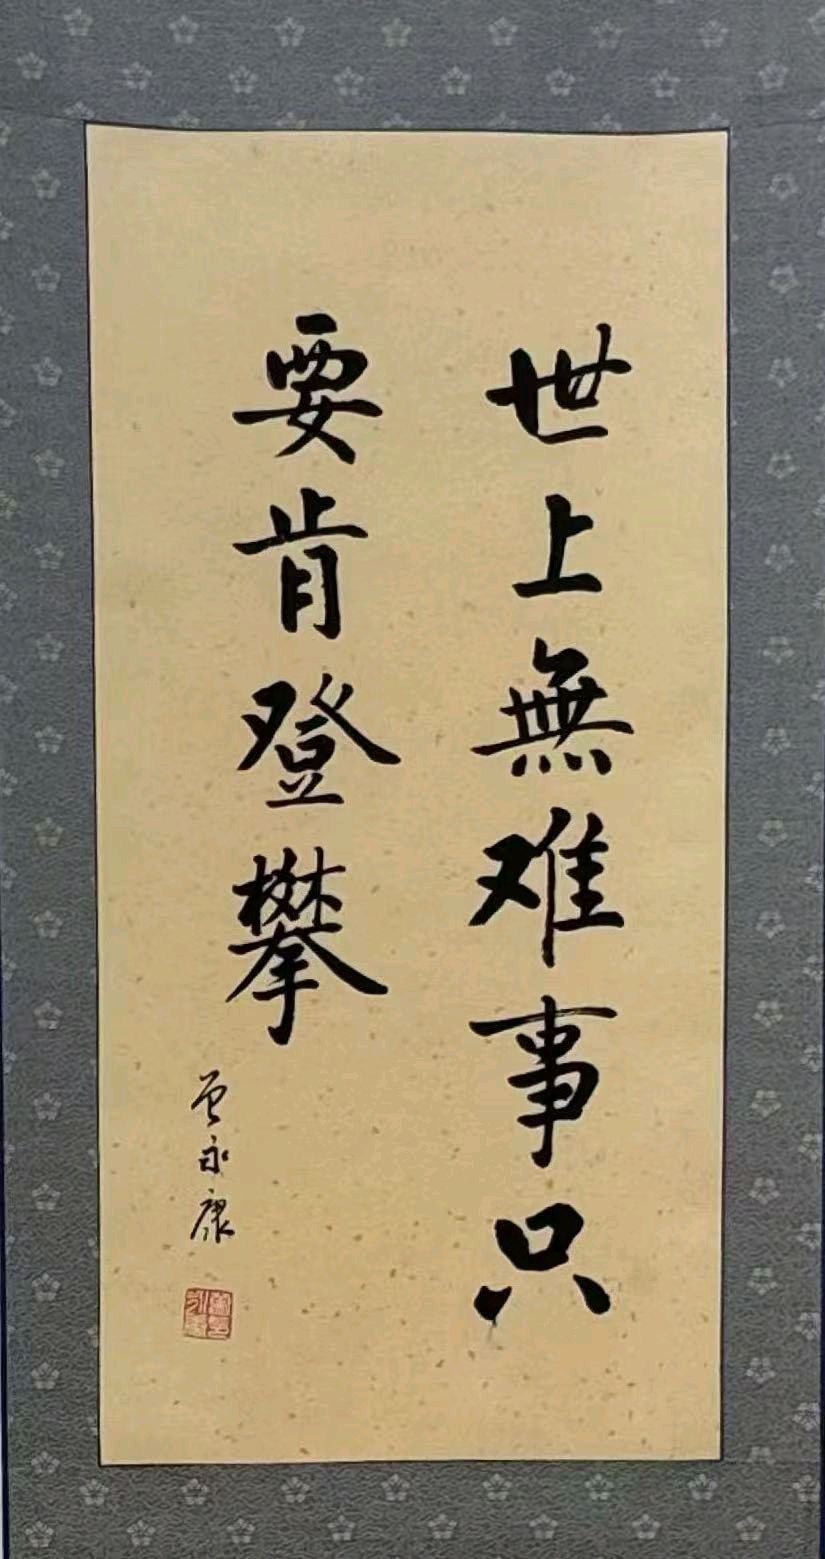 世上無难事只
要肯登攀
曾永康